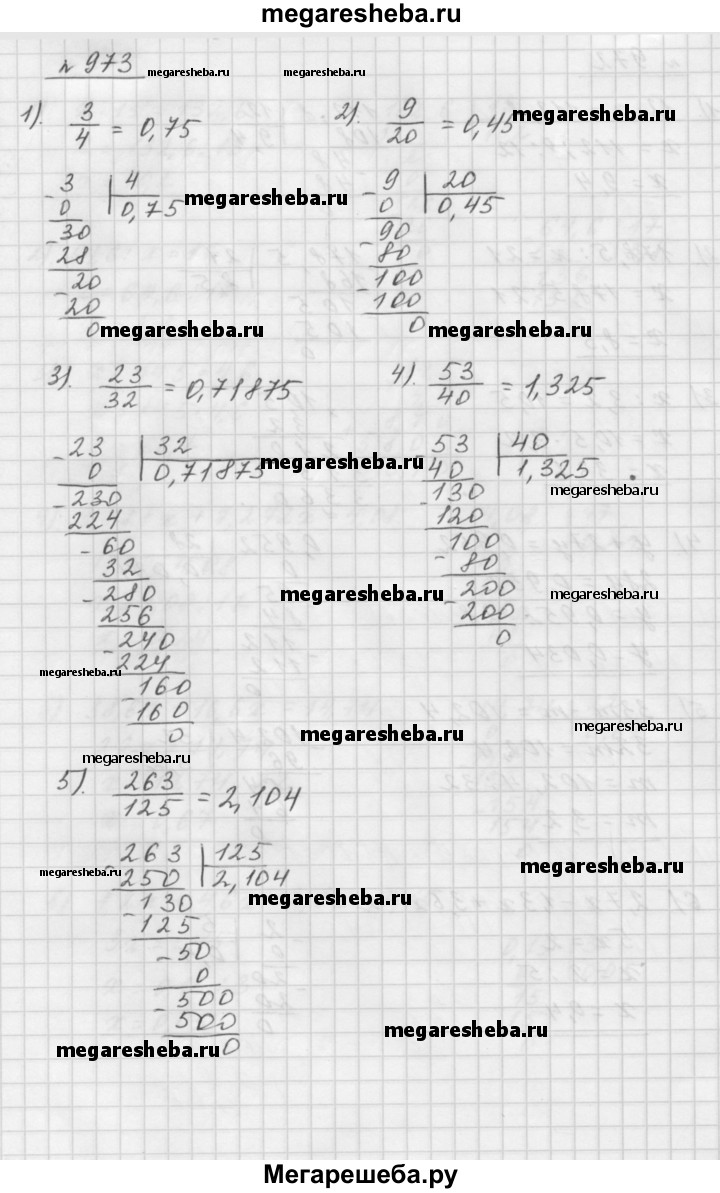 megaresheba.ru
№ 973
megaresheba.ru megaresheba.ru
1). 3/4 = 0,75
2). 9/20 = 0,45
megaresheba.ru
3 | 4
0 | 0,75
-30
28
-20
20
0
megaresheba.ru
-9 | 20
0 | 0,45
-90
80
-100
100
0
megaresheba.ru
megaresheba.ru
3). 23/32 = 0,71875
4). 53/40 = 1,325
-23 | 32
0 | 0,71875
-230
224
-60
32
-280
256
-240
224
-160
160
0
megaresheba.ru
-53 | 40
40 | 1,325
-130
120
100
-80
-200
200
0
megaresheba.ru
megaresheba.ru
megaresheba.ru
megaresheba.ru
megaresheba.ru
megaresheba.ru
megaresheba.ru
5). 263/125 = 2,104
-263 | 125
250 | 2,104
-130
125
-50
0
-500
500
0
megaresheba.ru
megaresheba.ru
megaresheba.ru
megaresheba.ru
megaresheba.ru
Мегарешеба.ру